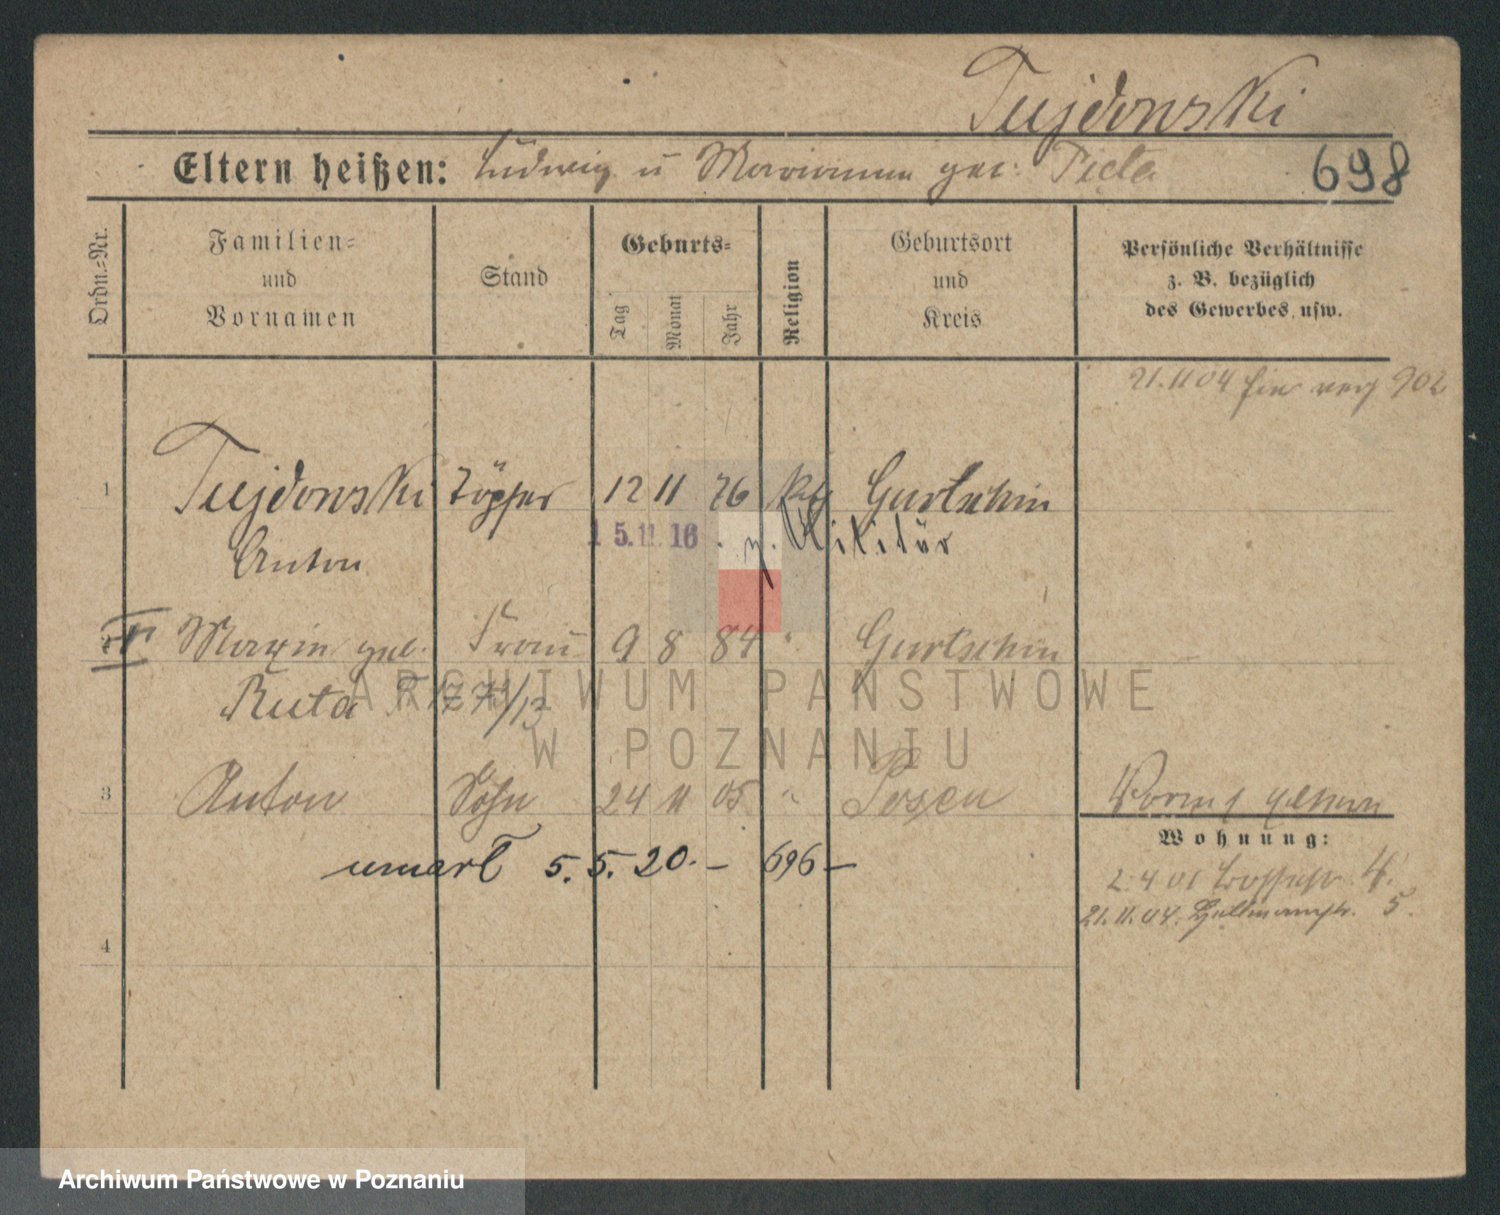 Tujdowski
Eltern heißen: Ludwig u Marianna geb: Pieta
698
Ordn.=Nr.
Familien=
und
Vornamen
Stand
Geburts=
Tag
Monat
Jahr
Religion
Geburtsort
und
Kreis
Persönliche Verhältnisse
z. B. bezüglich
des Gewerbes usw.
21.11 04 902
1 Tujdowski Töpfer 12 11 76 kth Gurtschin
15.11.16. z. Militär
Anton
Maria geb. Frau 9 8 84 " Gurtschin
Ruta 177 /13
ARCHIWUM PAŃSTWOWE
W POZNANIU
3 Anton Sohn 24 11 05 " Posen
Wohnung:
umart 5.5.20. – 696 –
2.4 01 4.
21.11.04. 5.
4
Archiwum Państwowe w Poznaniu